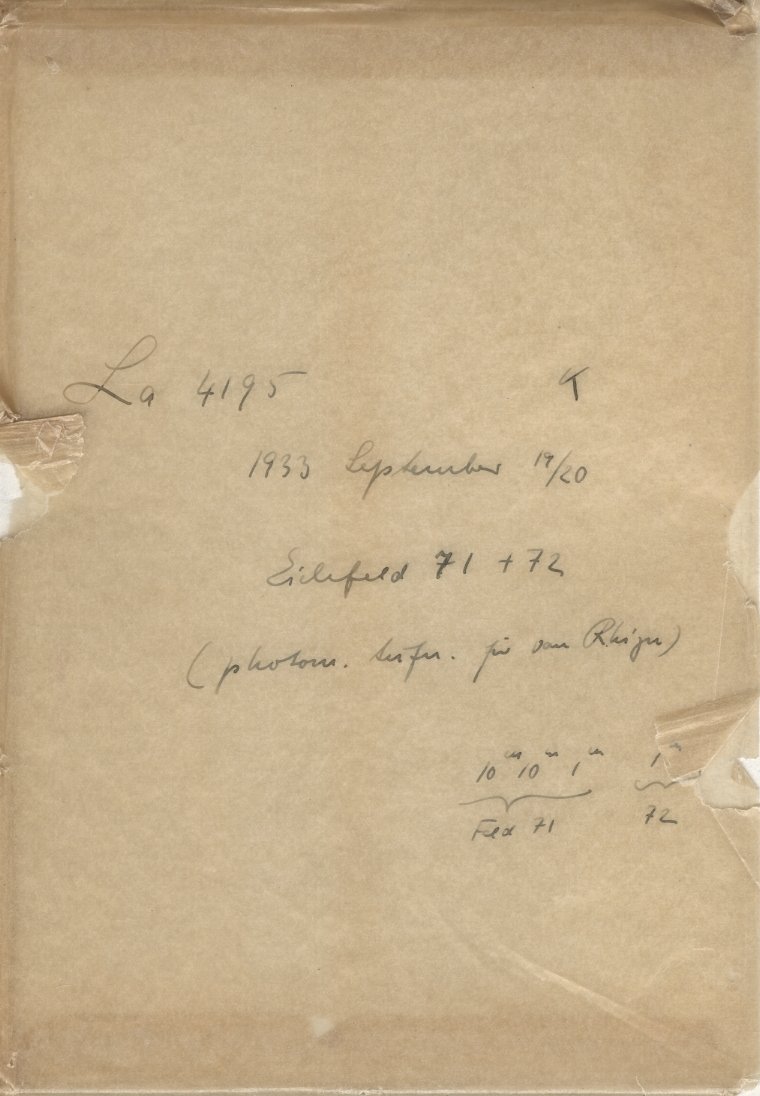 La 4195 K
1933 September 19/20
Eichfeld 71 + 72
(photom. Aufn. für van Rhijn)
10ᵐ 10ᵐ 1ᵐ 1ᵐ
Feld 71 72